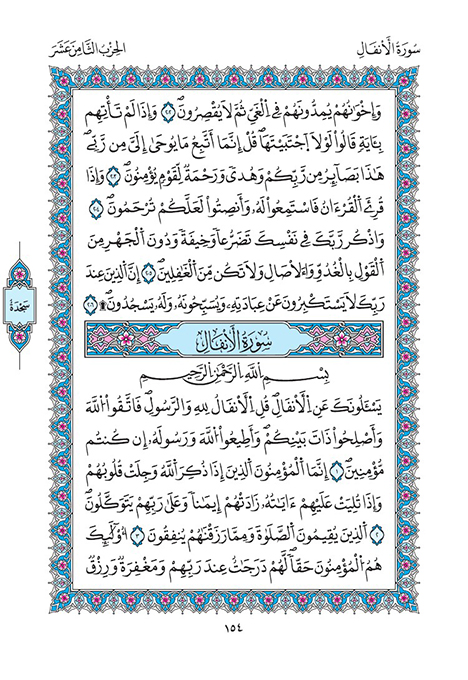 سُورَةُ الْأَنْفَالِ
الحِزْبُ الثَّامِنَ عَشَرَ
وَإِخْوَانُهُمْ يُمِدُّونَهُمْ فِي اِلْغَيِّ ثُمَّ لَا يُقْصِرُونَۖ ٢٠٢ وَإِذَا لَمْ تَأْتِهِم
بِـَٔايَةٍ قَالُوا لَوْلَا اَجْتَبَيْتَهَاۖ قُلْ إِنَّمَا أَتَّبِعُ مَا يُوحَىٰ إِلَيَّ مِن رَّبِّيۖ
هَٰذَا بَصَآئِرُ مِن رَّبِّكُمْ وَهُدىً وَرَحْمَةٌ لِّقَوْمٍ يُؤْمِنُونَۖ ٢٠٣ وَإِذَا
قُرِئَ اَلْقُرْءَانُ فَاسْتَمِعُوا لَهُۥ وَأَنصِتُوا لَعَلَّكُمْ تُرْحَمُونَۖ ٢٠٤
وَاذْكُر رَّبَّكَ فِي نَفْسِكَ تَضَرُّعاً وَخِيفَةً وَدُونَ اَلْجَهْرِ مِنَ
اَلْقَوْلِ بِالْغُدُوِّ وَالْأٓصَالِ وَلَا تَكُن مِّنَ اَلْغَٰفِلِينَۖ ٢٠٥ إِنَّ اَلذِينَ عِندَ
رَبِّكَ لَا يَسْتَكْبِرُونَ عَنْ عِبَادَتِهِۦ وَيُسَبِّحُونَهُۥ وَلَهُۥ يَسْجُدُونَۖ۩ ٢٠٦
سَجْدَة
سُورَةُ الْأَنْفَالِ
بِسْمِ اللَّهِ الرَّحْمَٰنِ الرَّحِيمِ
يَسْـَٔلُونَكَ عَنِ اِلْأَنفَالِۖ قُلِ اِلْأَنفَالُ لِلهِ وَالرَّسُولِۖ فَاتَّقُوا اللَّهَ
وَأَصْلِحُوا ذَاتَ بَيْنِكُمْۖ وَأَطِيعُوا اللَّهَ وَرَسُولَهُۥ إِن كُنتُم
مُّؤْمِنِينَۖ ١ إِنَّمَا اَلْمُؤْمِنُونَ اَلذِينَ إِذَا ذُكِرَ اَللَّهُ وَجِلَتْ قُلُوبُهُمْ
وَإِذَا تُلِيَتْ عَلَيْهِمْ ءَايَٰتُهُۥ زَادَتْهُمْ إِيمَٰناً وَعَلَىٰ رَبِّهِمْ يَتَوَكَّلُونَۖ
٢ اَلذِينَ يُقِيمُونَ اَلصَّلَوٰةَ وَمِمَّا رَزَقْنَٰهُمْ يُنفِقُونَۖ ٣ أُوْلَٰٓئِكَ
هُمُ اَلْمُؤْمِنُونَ حَقّاًۖ لَّهُمْ دَرَجَٰتٌ عِندَ رَبِّهِمْ وَمَغْفِرَةٌ وَرِزْقٌ
١٥٤